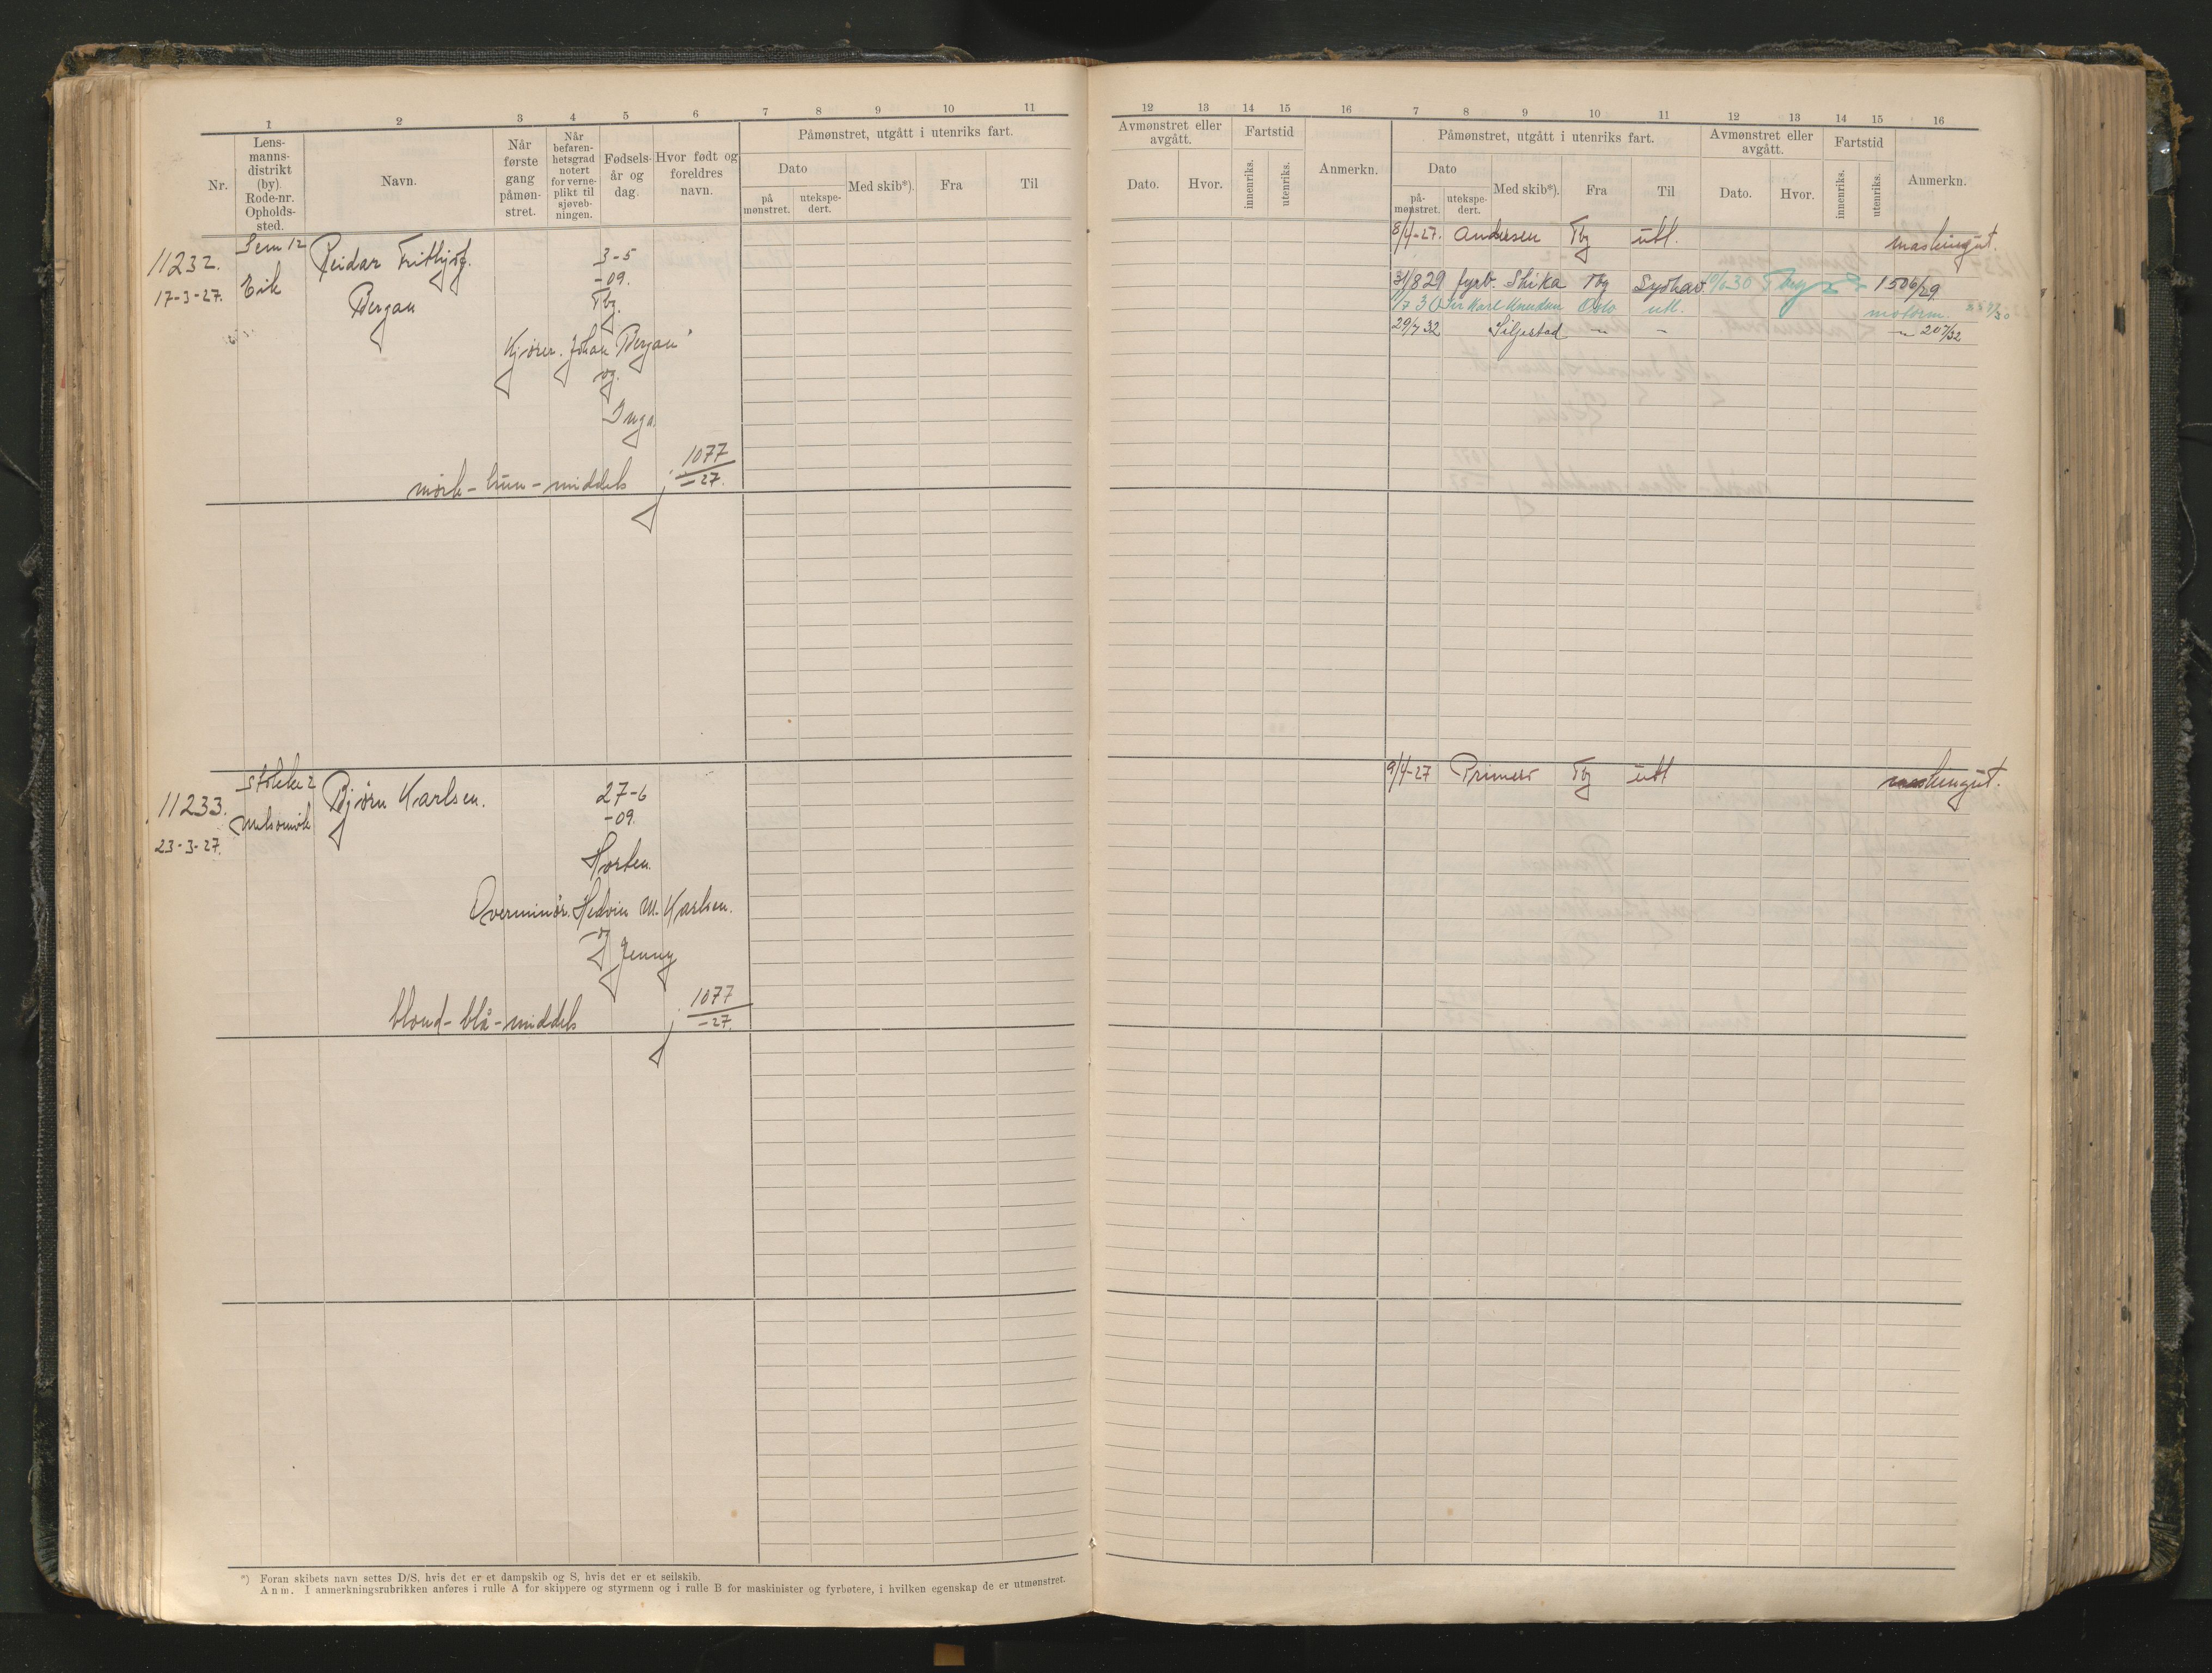 1 2 3 4 5 6 7 8 9 10 11
Nr.
Lens-
manns-
distrikt
(by).
Rode-nr.
Opholds-
sted.
Navn.
Når
første
gang
påmøn-
stret.
Når
befaren-
hetsgrad
notert
for verne-
plikt til
sjøveb-
ningen.
Fødsels-
år og
dag.
Hvor født og
foreldres
navn.
Påmønstret, utgått i utenriks fart.
Dato
på
mønstret.
utekspe-
dert.
Med skib*).
Fra
Til
11232. Sem 12 Reidar Fritbjof. 3-5
17-3-27. Eik Bergan -09.
Tbg.
Kjører. Johan Bergan
og
Inga.
mørk - brun - middels 1077
-27.
11233. Stokke 2 Bjørn Karlsen. 27-6
23-3-27. Melsomvik -09.
Horten.
Overminør. Hedvin M. Karlsen.
og
Jenny
blond - blå - middels 1077
-27.
*) Foran skibets navn settes D/S, hvis det er et dampskib og S, hvis det er et seilskib.
Anm. I anmerkningsrubrikken anføres i rulle A for skippere og styrmenn og i rulle B for maskinister og fyrbøtere, i hvilken egenskap de er utmønstret.
12 13 14 15 16 7 8 9 10 11 12 13 14 15 16
Avmønstret eller
avgått.
Dato.
Hvor.
Fartstid
innenriks.
utenriks.
Anmerkn.
Påmønstret, utgått i utenriks fart.
Dato
på-
mønstret.
utekspe-
dert.
Med skib*).
Fra
Til
Avmønstret eller
avgått.
Dato.
Hvor.
Fartstid
innenriks.
utenriks.
Anmerkn.
8/4-27. Andersen Tbg utl. maskingut.
31/8 29 fyrb. Skika Tbg Sydhav. 10/6-30 Tbg 1506/29
1/7 30 Sir Karl Knudsen Oslo utl. motorm.
29/7 32 Siljestad - " - - - " - 207/32
9/4-27 Primero Tbg utl maskingut.